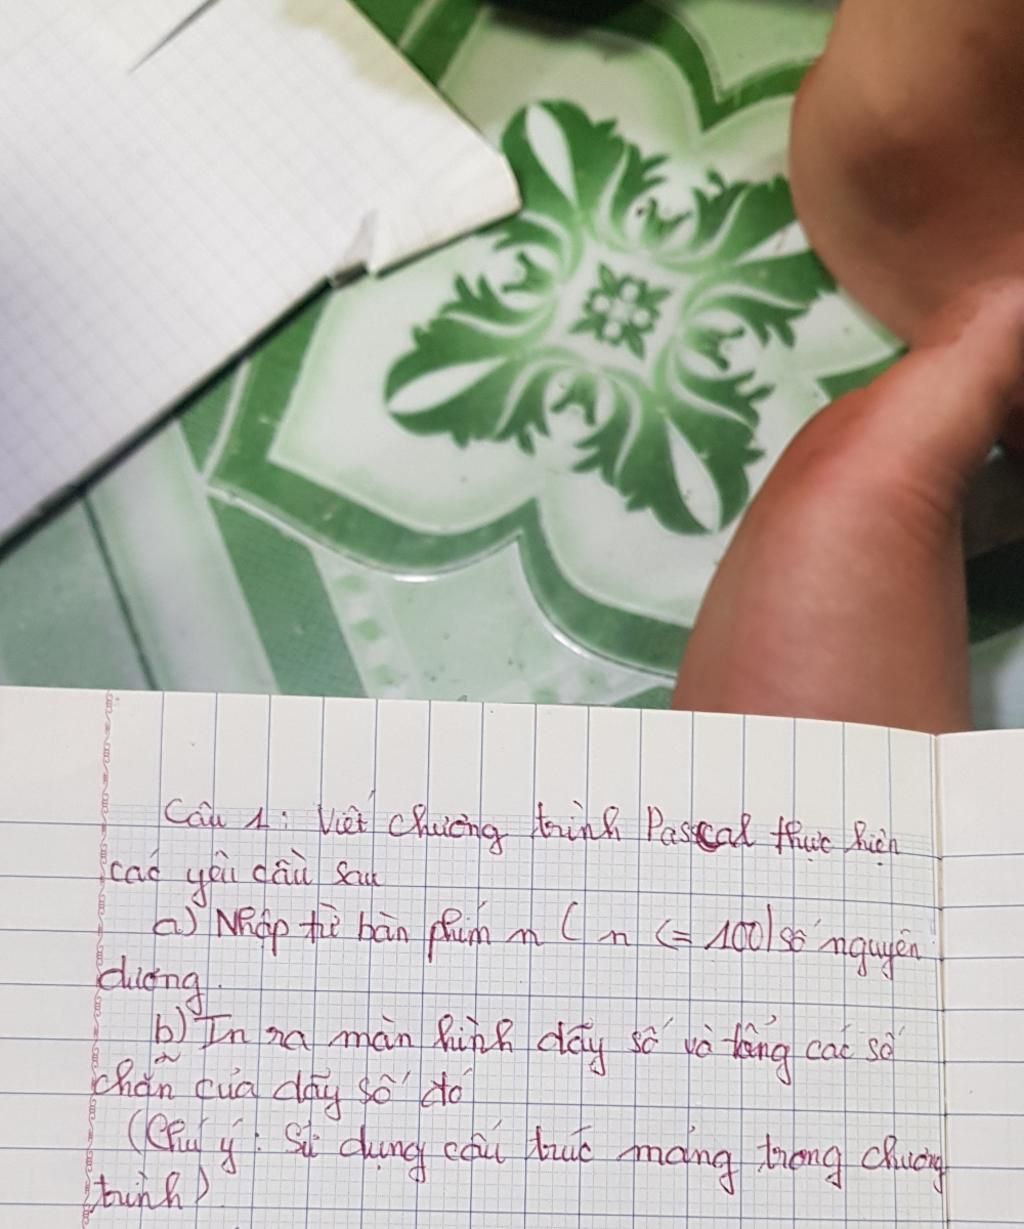 Câu 1: Viết chương trình Pascal thực hiện
các yêu cầu sau
a) Nhập từ bàn phím n ( n <= 100) số nguyên
dương.
b) In ra màn hình dãy số và tổng các số
chẵn của dãy số đó
(Chú ý: Sử dụng cấu trúc mảng trong chương
trình)